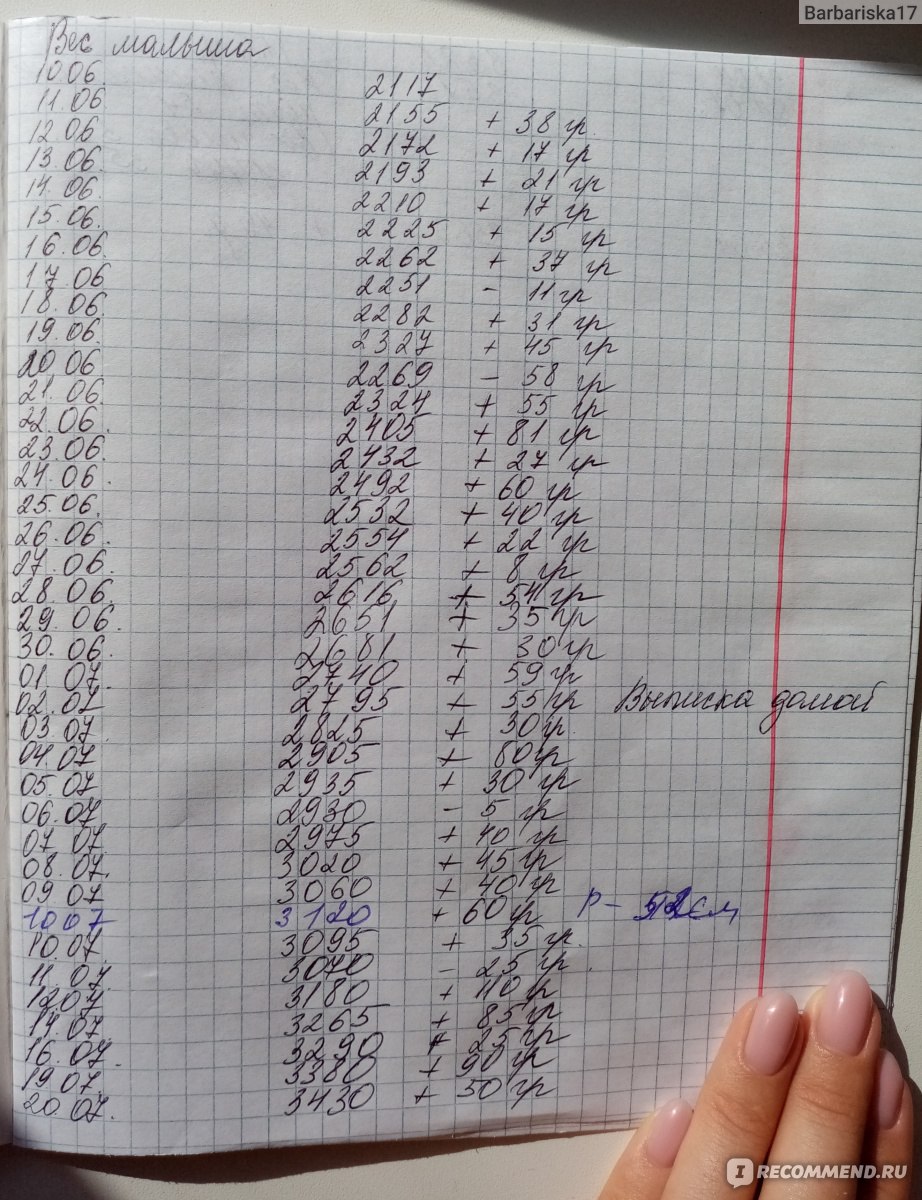 Barbariska17
Вес малыша
10.06 2117
11.06 2155 + 38 гр.
12.06 2172 + 17 гр
13.06. 2193 + 21 гр
14.06. 2210 + 17 гр
15.06. 2225 + 15 гр
16.06. 2262 + 37 гр
17.06 2251 - 11 гр
18.06. 2282 + 31 гр
19.06. 2327 + 45 гр
20 06 2269 - 58 гр
21.06. 2324 + 55 гр
22.06. 2405 + 81 гр
23.06. 2432 + 27 гр
24.06. 2492 + 60 гр
25.06. 2532 + 40 гр
26.06. 2554 + 22 гр
27.06. 2562 + 8 гр
28.06. 2616 + 54 гр
29.06. 2651 + 35 гр
30.06. 2681 + 30 гр
01.07. 2740 + 59 гр
02.07 2795 + 55 гр Выписка домой
03.07 2825 + 30 гр.
04.07 2905 + 80 гр
05.07 2935 + 30 гр
06.07 2930 - 5 гр
07 07 2975 + 40 гр
08.07. 3020 + 45 гр
09 07 3060 + 40 гр
10 07 3120 + 60 гр Р - 52см
10.07. 3095 + 35 гр.
11.07. 3070 - 25 гр.
12.07 3180 + 110 гр
14.07 3265 + 85 гр
16.07. 3290 + 25 гр
19.07. 3380 + 90 гр
20.07. 3430 + 50 гр
IRECOMMEND.RU